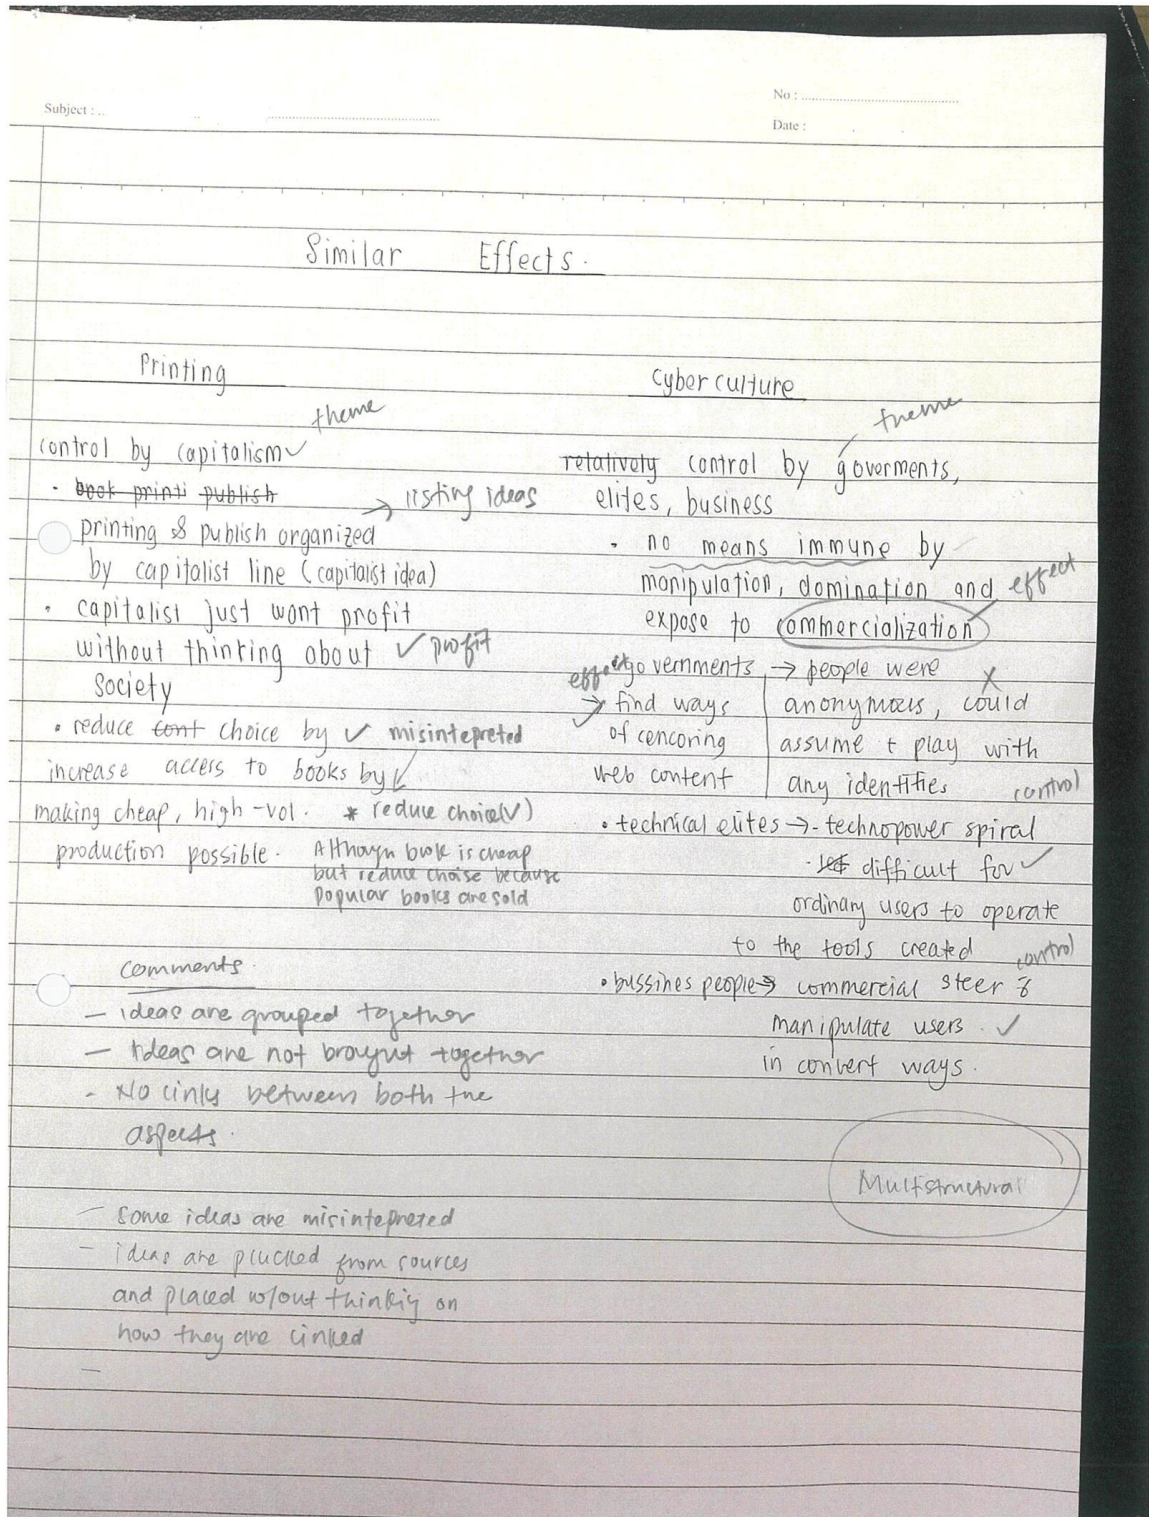 Subject :
No :
Date :
Similar Effects.
Printing
theme
control by capitalism
book printi publish
→ listing ideas
printing & publish organized
by capitalist line (capitalist idea)
• capitalist just wont profit
without thinking about ✓ profit
society
• reduce cont choice by ✓ misintepreted
increase access to books by
making cheap, high-vol. * reduce choice (✓)
production possible. Although book is cheap
but reduce choise because
popular books are sold
comments.
- ideas are grouped together
- Ideas are not brought together
- No links between both the
aspects.
- some ideas are misintepreted
- ideas are plucked from sources
and placed w/out thinkig on
how they are linked
-
Cyber culture
theme
relatively control by goverments,
elites, business
• no means immune by
manipulation, domination and effect
expose to commercialization
effect governments → people were
→ find ways anonymous, could X
of cencoring assume + play with
web content any identities control
• technical elites → - technopower spiral
• difficult for ✓
ordinary users to operate
to the tools created control
• bussines people → commercial steer &
manipulate users. ✓
in convert ways.
Multistructural